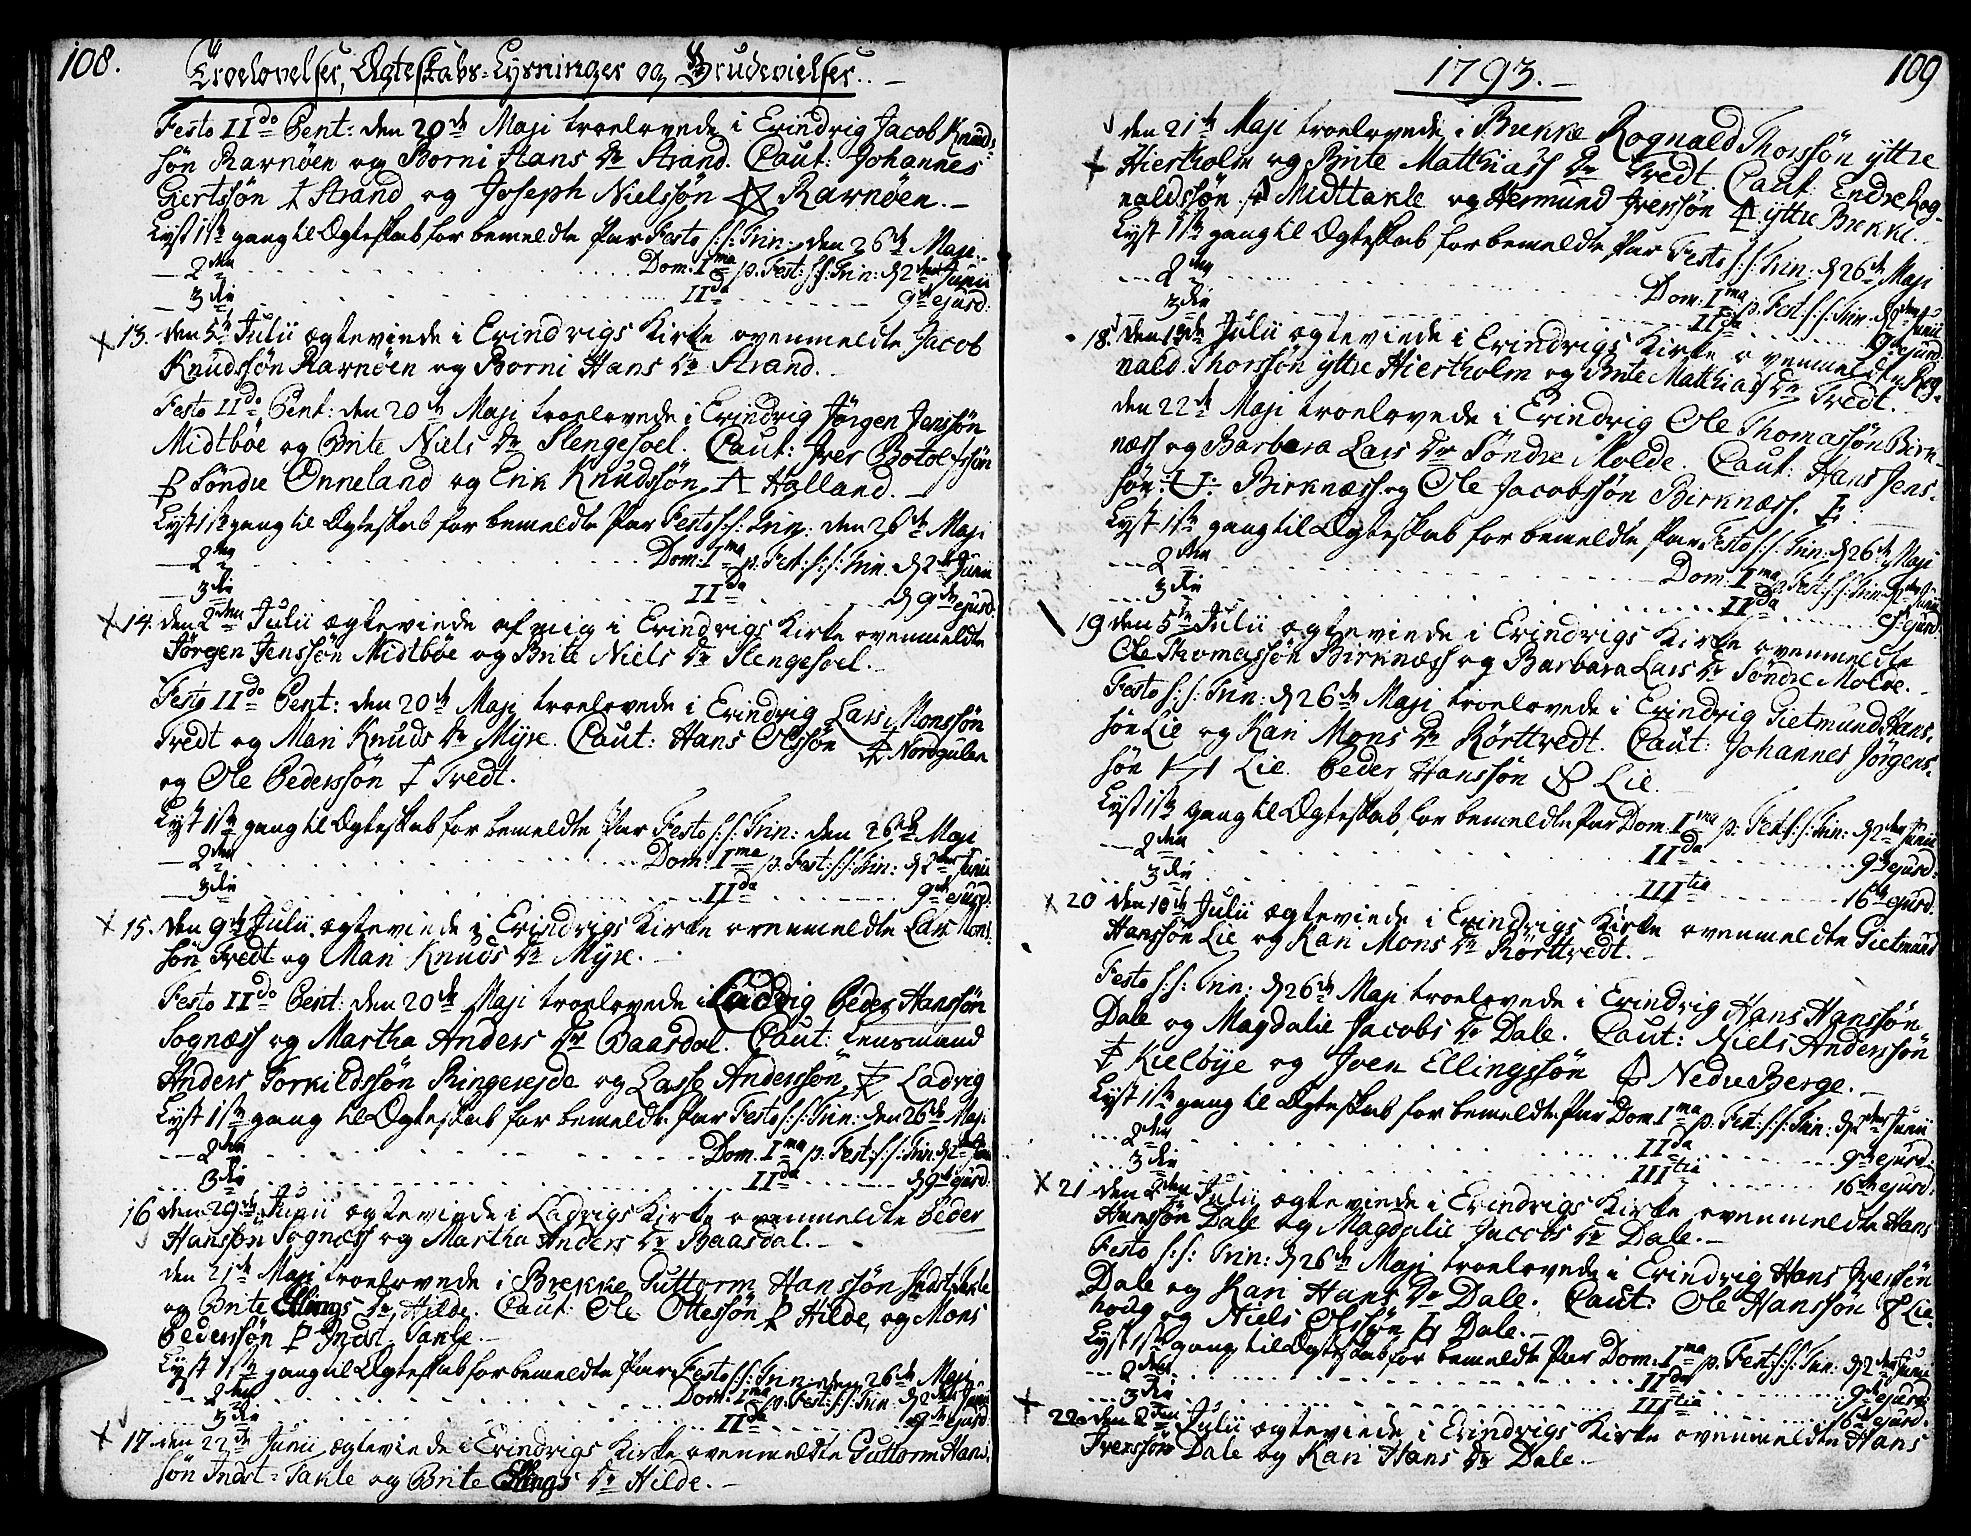 108.
Troelovelser, Ægteskabs-Lysninger og Brudevielser.
Festo II do Pent: den 20de Maji troelovede i Evindvig Jacob Knud-
søn Ravnøen og Borni Hans Dr Strand. Caut: Johannes
Gertssøn Strand og Joseph Nielssøn Ravnøen.
Lyst 1ste gang til Ægteskab for bemeldte Par Festo S:S: Trin: den 26de Maji.
2den Dom: I ma p. Fest: S:S: Trin: d 2den Junii
3die II da 9de ejusd:
13. den 5te Julii ægteviede i Evindvigs Kirke ovenmeldte Jacob
Knudssøn Ravnøen og Borni Hans Dr Strand.
Festo II do Pent: den 20de Maji troelovede i Evindvig Jørgen Jenssøn
Midtbøe og Brite Niels Dr Slengesoel. Caut: Iver Botolfssøn
Søndre Önneland og Erik Knudssøn Halland.
Lyst 1ste gang til Ægteskab for bemeldte Par Festo S:S: Trin: den 26de Maji
2den Dom: I ma p. Fest: S:S: Trin: d 2den Junii
3die II da d 9de ejusd.
14. den 2den Julii ægteviede af mig i Evindvigs Kirke ovenmeldte
Jørgen Jenssøn Midtbøe og Brite Niels Dr Slengesoel.
Festo II do Pent: den 20de Maji troelovede i Evindvig Lars Monssøn
Tredt og Mari Knuds Dr Myre. Caut: Hans Olssøn Nordgulen
og Ole Pederssøn Tredt.
Lyst 1ste gang til Ægteskab for bemeldte Par Festo S:S: Trin: den 26de Maji
2den Dom: I ma p. Fest: S:S: Trin: d 2den Junii
3die II da 9de ejusd.
15. den 9de Julii ægteviede i Evindvigs Kirke ovenmeldte Lars Mons-
søn Tredt og Mari Knuds Dr Myre.
Festo II do Pent: den 20de Maji troelovede i Ladvig Peder Hanssøn
Sognæss og Martha Anders Dr Baasdal. Caut: Lensmand
Anders Torkildssøn Ringereyde og Lasse Anderssøn Ladvig
Lyst 1ste gang til Ægteskab for bemeldte Par Festo S:S: Trin: den 26de Maji
2den Dom: I ma p: Fest: S:S: Trin: d 2den Junii
3die II da d 9de ejusd.
16 den 29de Junii ægteviede i Ladvigs Kirke ovenmeldte Peder
Hanssøn Sognæss og Martha Anders Dr Baasdal.
den 21de Maji troelovede i Brekke Guttorm Hanssøn Indst. Takle
og Brite Ellings Dr Hilde. Caut: Ole Ottessøn Hilde, og Mons
Pederssøn Indst. Takle.
Lyst 1ste gang til Ægteskab for bemeldte Par Festo S:S: Trin: den 26de Maji
2den Dom: I ma p. Fest: S:S: Trin: d 2den Junii
3die II da 9de ejusd.
17. den 22de Junii ægteviede i Evindvigs Kirke ovenmeldte Guttorm Hans-
søn Indst. Takle og Brite Ellings Dr Hilde.
1793.
109
den 21de Maji troelovede i Brekke Rognald Thorssøn yttre
Hiertholm og Brite Matthiass Dr Tredt. Caut: Endre Rog-
naldssøn Midttakle og Hermund Iverssøn yttre Brekke.
Lyst 1ste gang til Ægteskab for bemeldte Par Festo S:S: Trin: d 26de Maji
2den Dom: I ma p. Fest: S:S: Trin: d 2den Junii
3die II da 9de ejusd:
18. den Julii ægteviede i Evindvigs Kirke ovenmeldte Rog-
nald Thorssøn yttre Hiertholm og Brite Matthiass Dr Tredt.
den 22de Maji troelovede i Evindvig Ole Thomassøn Birk-
næss og Barbara Lars Dr Søndre Molde. Caut: Hans Jens-
søn Birknæss og Ole Jacobssøn Birknæss.
Lyst 1ste gang til Ægteskab for bemeldte Par Festo S:S: Trin: d 26de Maji
2den Dom: I ma p. Fest: S:S: Trin: d 2den Junii
3die II da 9de ejusd:
19 den 5te Julii ægteviede i Evindvigs Kirke ovenmeldte
Ole Thomassøn Birknæss og Barbara Lars Dr Søndre Molde.
Festo S:S: Trin: d 26de Maji troelovede i Evindvig Gietmund Hans-
søn Lie og Kari Mons Dr Rörttvedt. Caut: Johannes Jörgens-
søn Lie. Peder Hanssøn Lie.
Lyst 1ste gang til Ægteskab for bemeldte Par Dom: I ma p: Fest: S:S: Trin: d 2den Junii
2den II da 9de ejusd:
3die III tia 16de ejusd.
20 den 10de Julii ægteviede i Evindvigs Kirke ovenmeldte Gietmund
Hanssøn Lie og Kari Mons Dr Rörttvedt.
Festo S:S: Trin: d 26de Maji troelovede i Evindvig Hans Hanssøn
Dale og Magdalie Jacobs Dr Dale. Caut: Niels Anderssøn
Kielbye og Joen Ellingssøn Nedre Berge.
Lyst 1ste gang til Ægteskab for bemeldte Par Dom: I ma p. Fest: S:S: Trin: d 2den Junii
2den II da 9de ejusd:
3die III tia 16de ejusd:
21 den 2den Julii ægteviede i Evindvigs Kirke ovenmeldte Hans
Hanssøn Dale og Magdalie Jacobs Dr Dale.
Festo S:S: Trin: d 26de Maji troelovede i Evindvig Hans Iverssøn
Dale og Kari Hans Dr Dale. Caut: Ole Hanssøn Lie-
houg og Niels Olssøn Dale.
Lyst 1ste gang til Ægteskab for bemeldte Par Dom: I ma p. Fest: S:S: Trin: d 2den Junii
2den II da 9de ejusd:
3die III tia 16de ejusd.
22. den 2den Julii ægteviede i Evindvigs Kirke ovenmeldte Hans
Iverssøn Dale og Kari Hans Dr Dale.